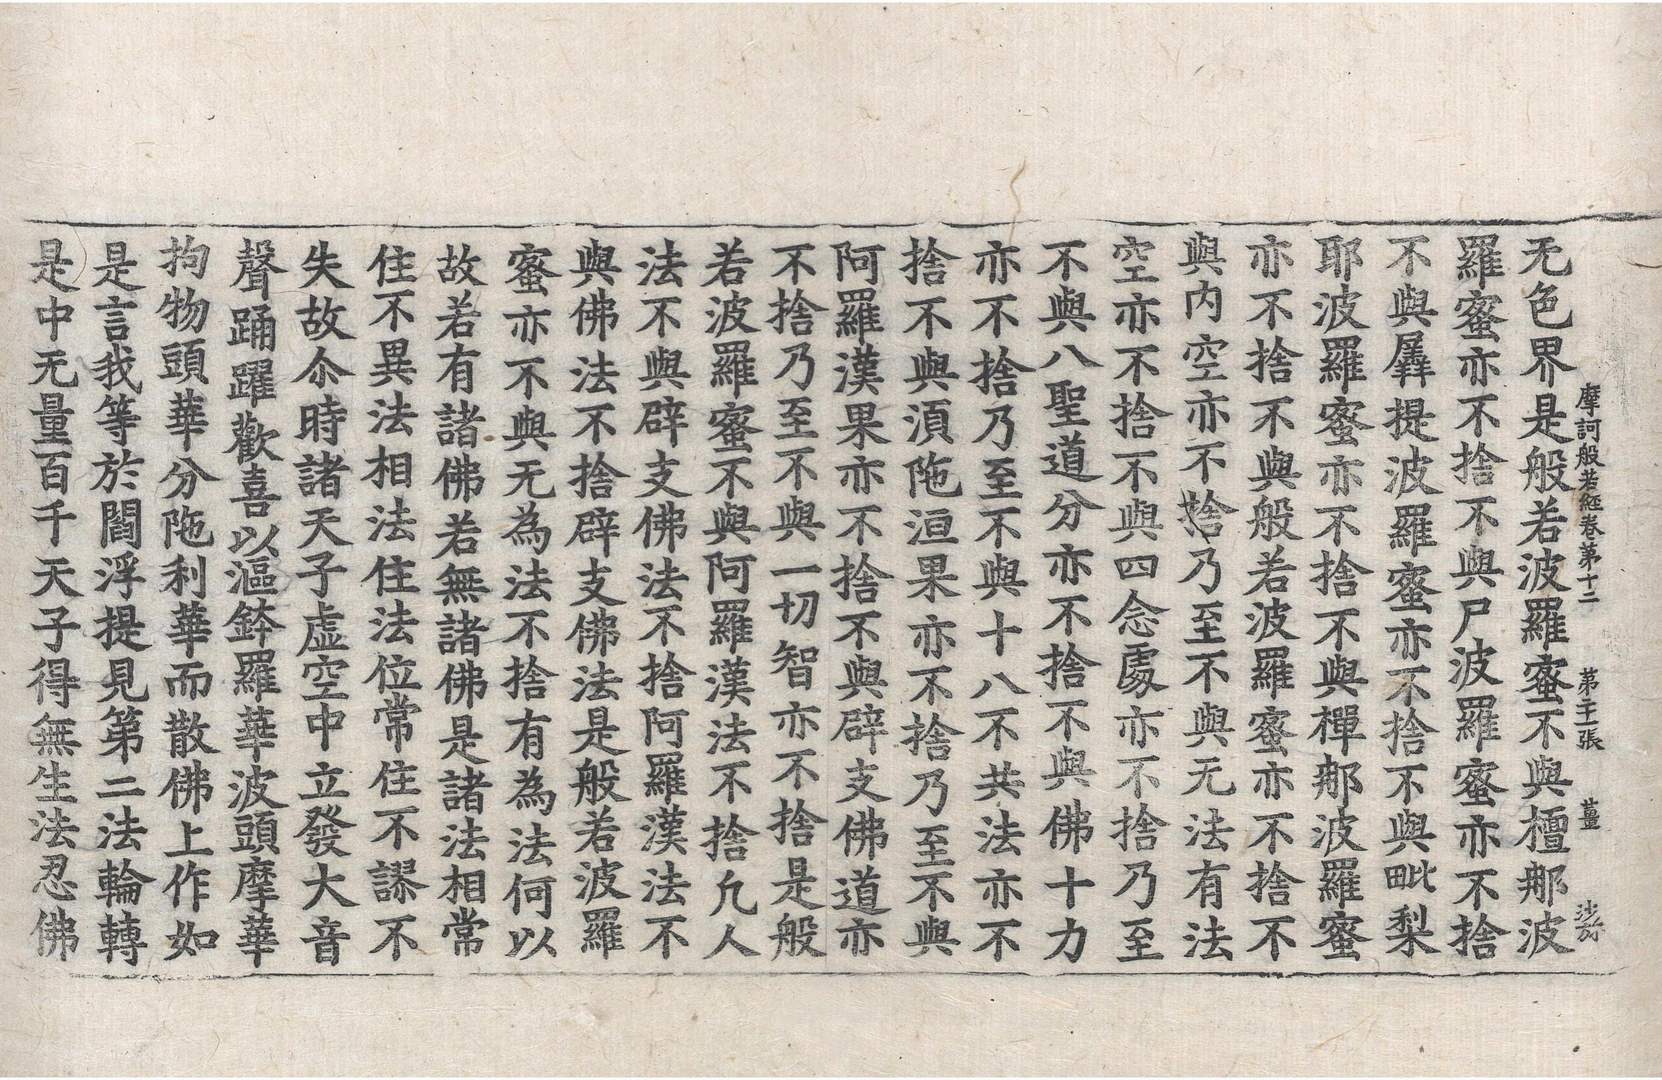 摩訶般若經卷第十二 第二十一張 薑
无色界是般若波羅蜜不與檀那波
羅蜜亦不捨不與尸波羅蜜亦不捨
不與羼提波羅蜜亦不捨不與毗梨
耶波羅蜜亦不捨不與禪那波羅蜜
亦不捨不與般若波羅蜜亦不捨不
與内空亦不捨乃至不與无法有法
空亦不捨不與四念處亦不捨乃至
不與八聖道分亦不捨不與佛十力
亦不捨乃至不與十八不共法亦不
捨不與須陁洹果亦不捨乃至不與
阿羅漢果亦不捨不與辟支佛道亦
不捨乃至不與一切智亦不捨是般
若波羅蜜不與阿羅漢法不捨凡人
法不與辟支佛法不捨阿羅漢法不
與佛法不捨辟支佛法是般若波羅
蜜亦不與无為法不捨有為法何以
故若有諸佛若無諸佛是諸法相常
住不異法相法住法位常住不謬不
失故尒時諸天子虛空中立發大音
聲踊躍歡喜以漚鉢羅華波頭摩華
拘物頭華分陁利華而散佛上作如
是言我等於閻浮提見第二法輪轉
是中无量百千天子得無生法忍佛